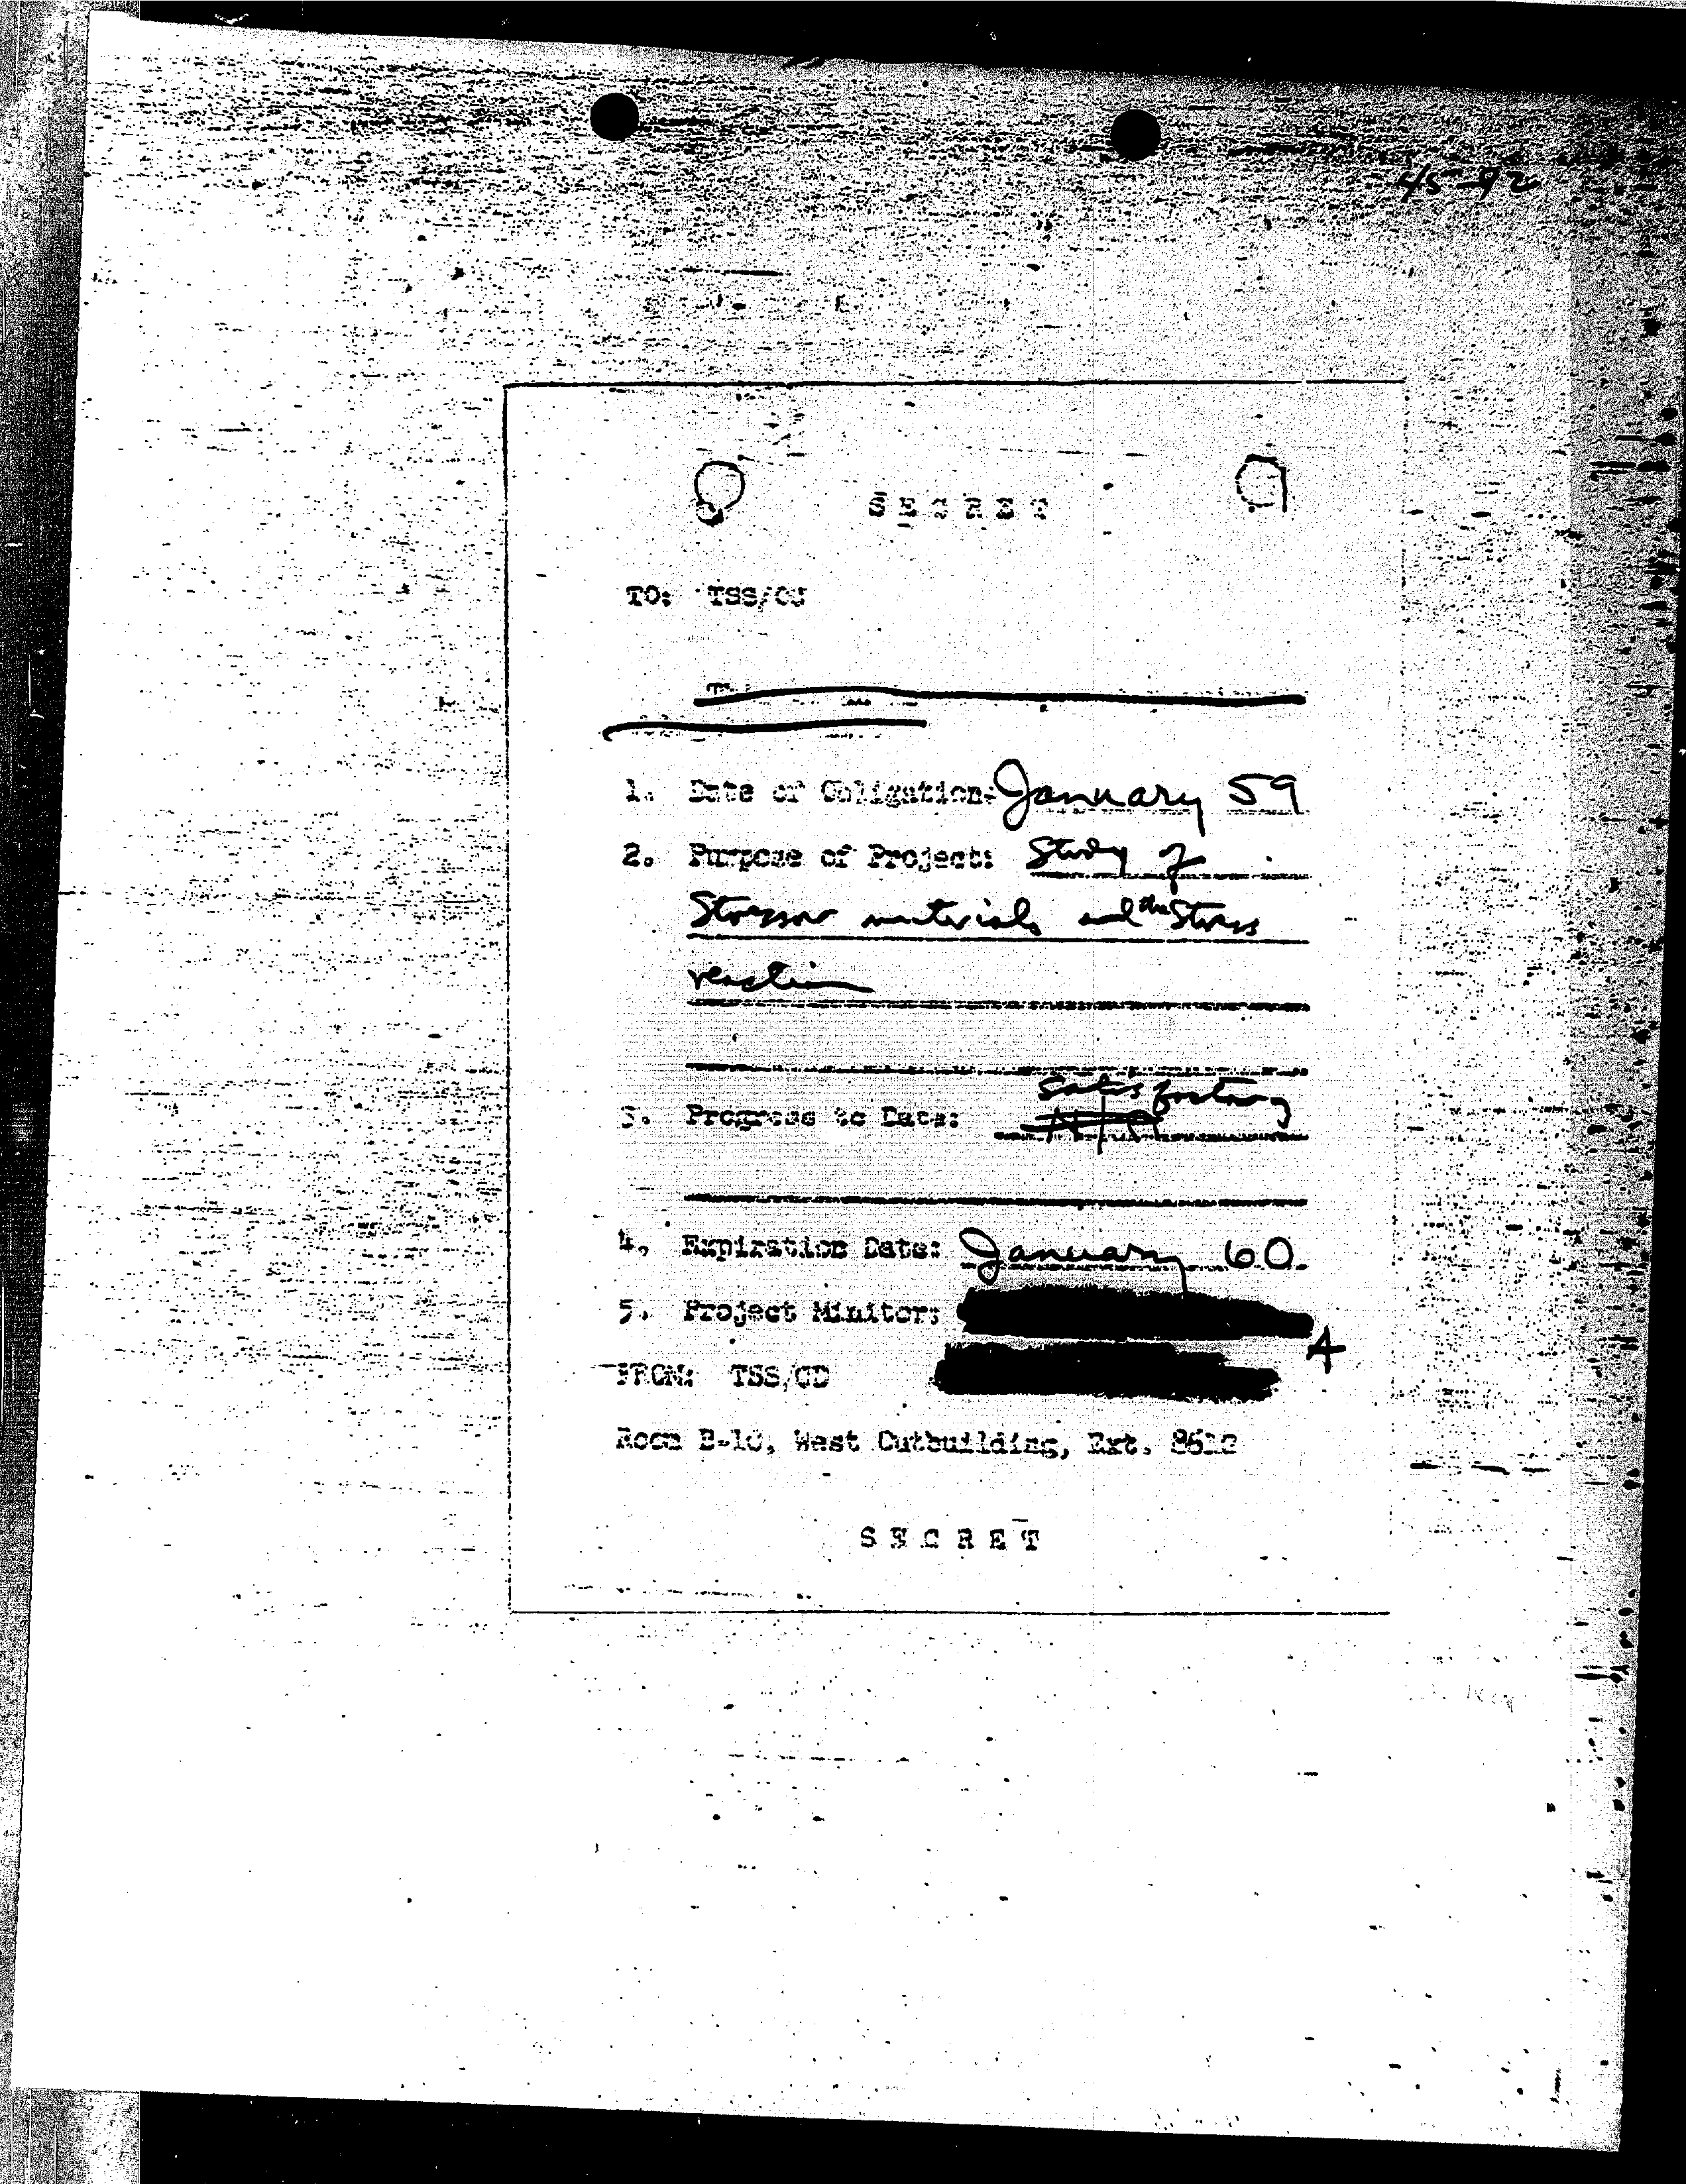 45-92
S E C R E T
TO: TSS/
1. Date of Obligation: January 59
2. Purpose of Project: Study of
Stressor materials and the Stress
reaction
satisfactory
3. Progress to Date:
4. Expiration Date: January 60
5. Project Minitor:
A
FROM: TSS/CD
Room B-10, West Outbuilding, Ext. 8612
S E C R E T